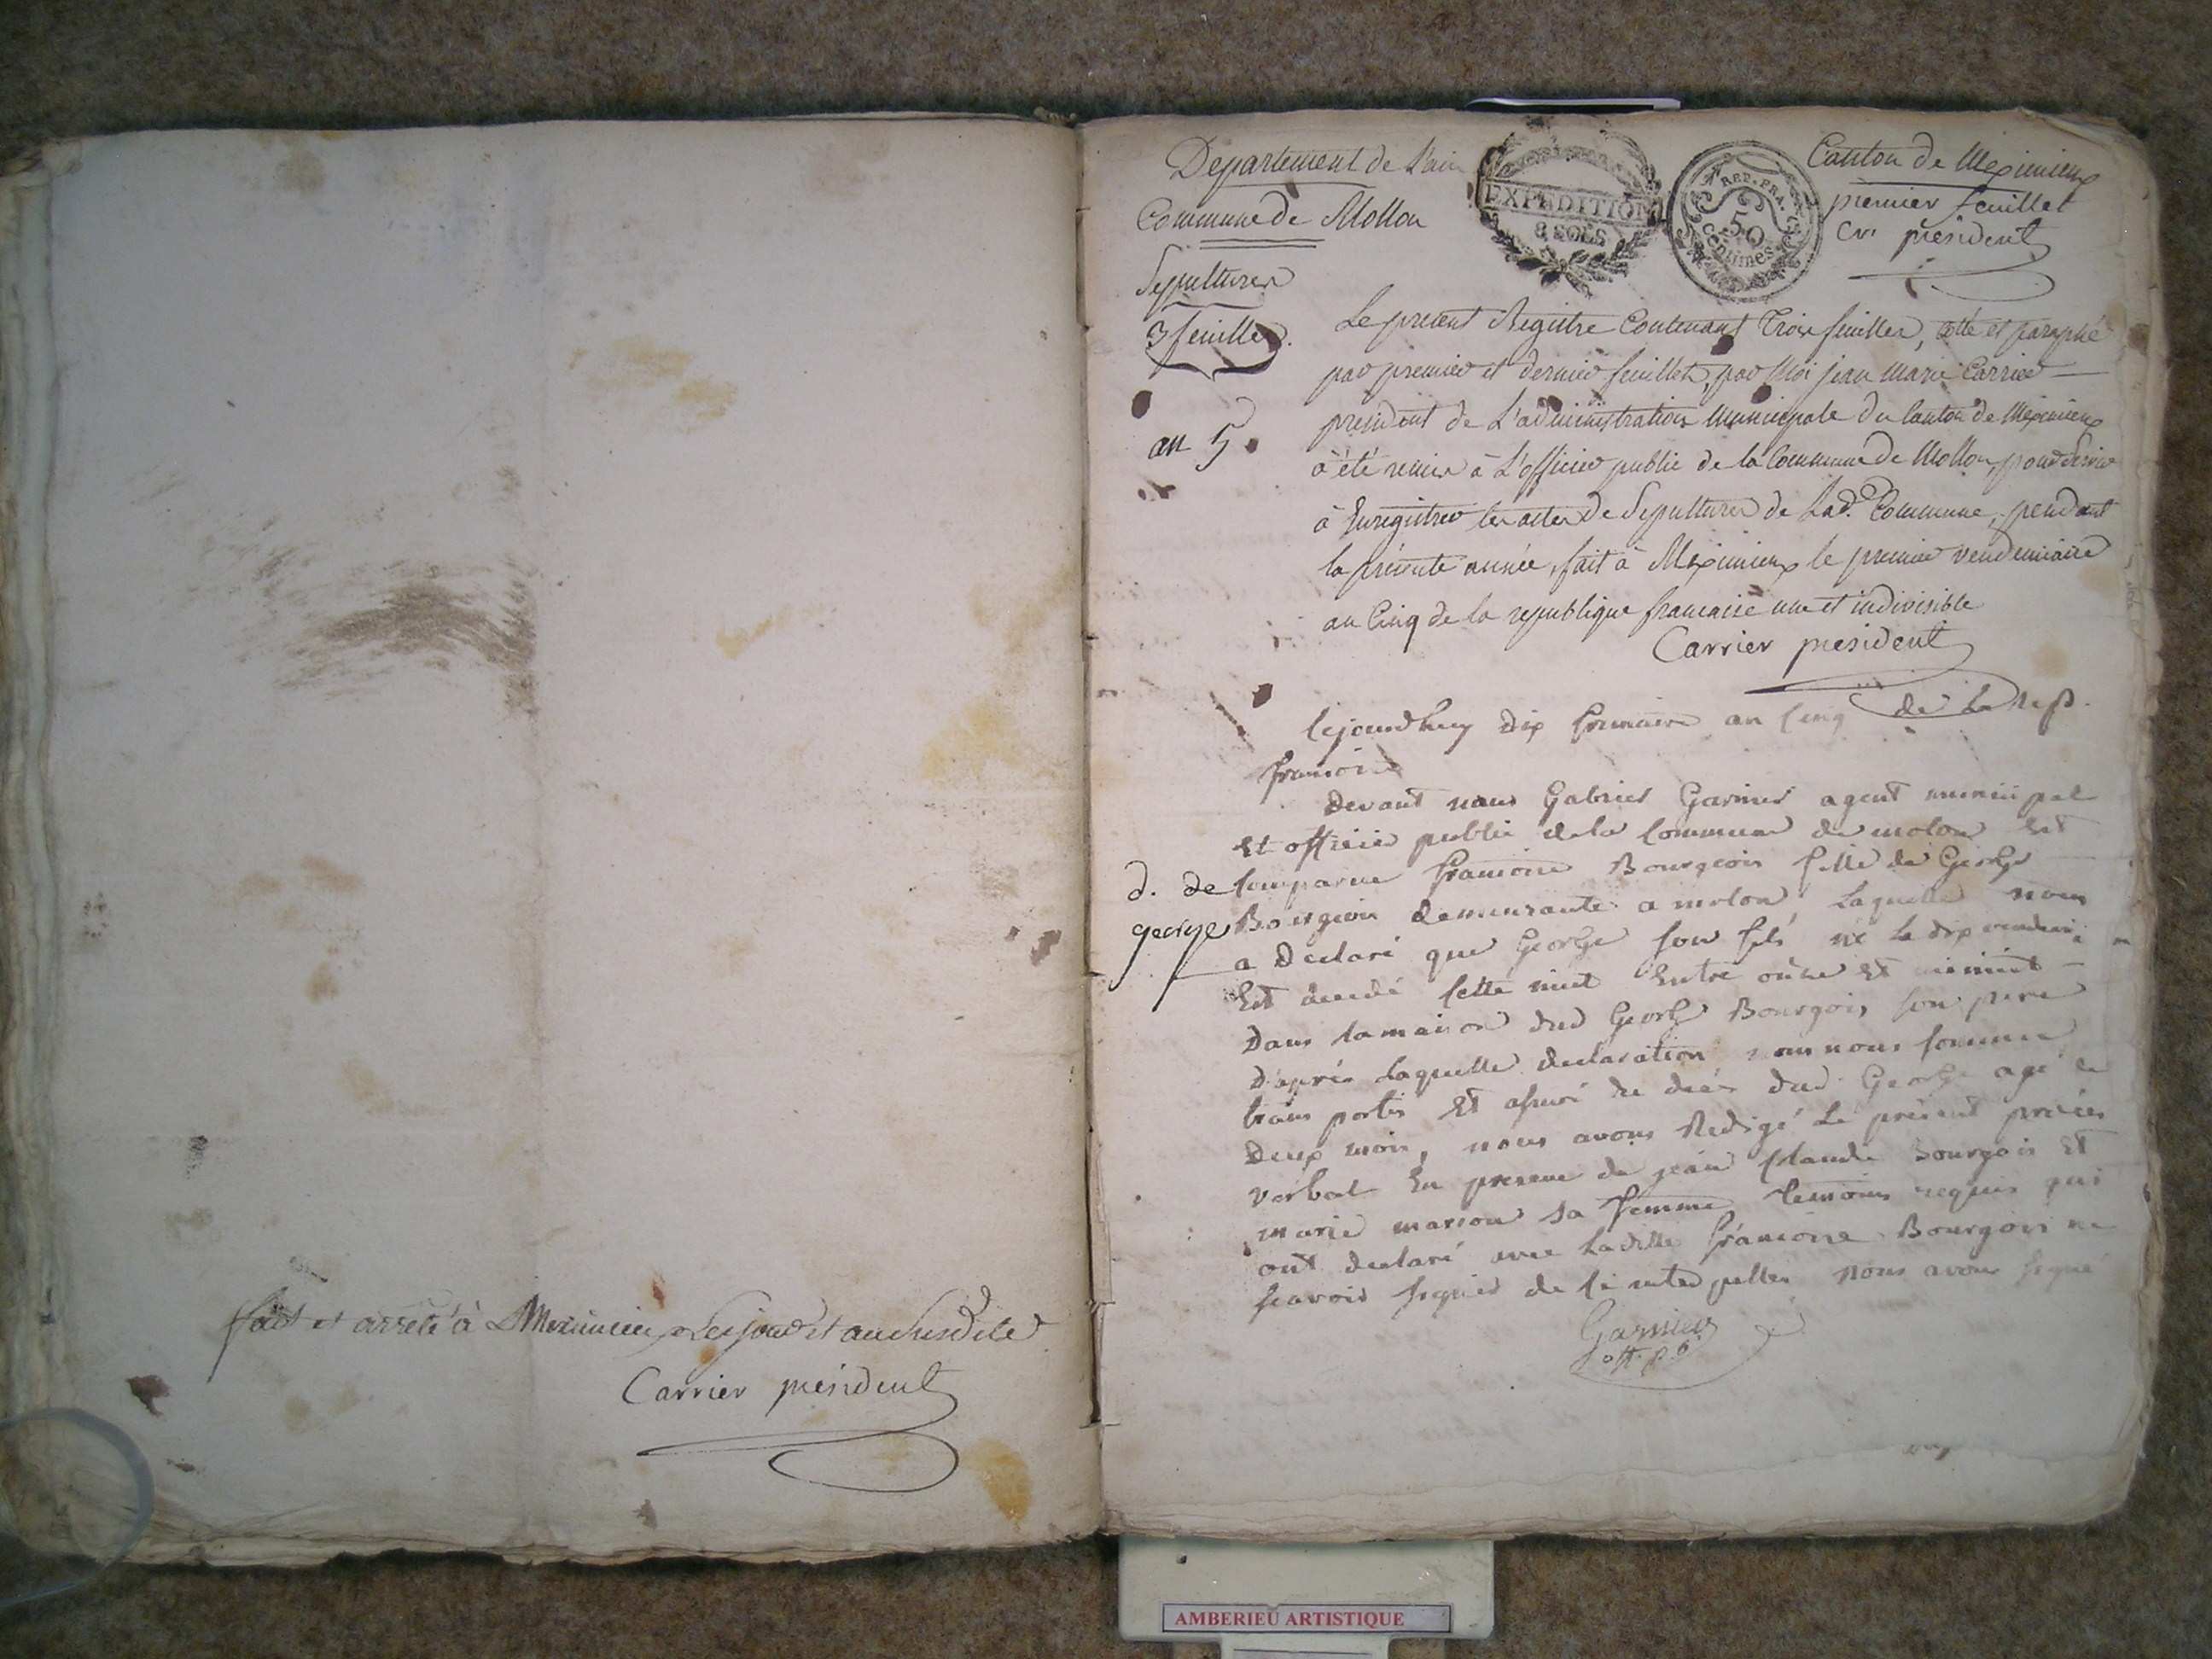 fait et arreté à Meximieux Les jour et an susdite
Carrier president
Departement de L'ain
Commune de Mollon
EXPEDITION
8 SOLS
REP. FRA.
50
centimes
Canton de Meximieux
premier feuillet
Crr president
Sepultures
3 feuilles.
an 5
Le present Registre Contenant Trois feuilles, côtté et paraphé
par premier et dernier feuillets, par Moi jean Marie Carrier
president de L'administration Municipale du Canton de Meximieux
à été remis à L'officier public de la Commune de Mollon, pour Servir
à Enregistrer les actes de Sepultures de Lad. Commune, pendant
la présente année, fait à Meximieux le premier vendemiaire
an Cinq de la republique francaise une et indivisible
Carrier president
Cejourdhuy dix frimaire an Cinq de la Rep.
francoise
Devant nous Gabriel Garnier agent municipal
Et officier public de la Commune de molon Est
d. de
george
Comparue francoise Bourgeois fille de George
Bourgeois demeurante a molon Laquelle nous
a Déclaré que George son fils né le dix vendem
Est decedé Cette nuit Entre onze Et minuit
Dans la maison dud George Bourgois son pere
D'après Laquelle declaration nous nous somme
trans portés Et assuré du déces dud. George agé de
Deux mois, nous avons Redigé Le présent procès
verbal En presence de jean Claude Bourgois Et
marie marion sa femme temoins requis qui
ont declaré avec Laditte francoise Bourgois ne
scavoir signer de Ce interpellés Nous avons signé
Garnier
off. p.